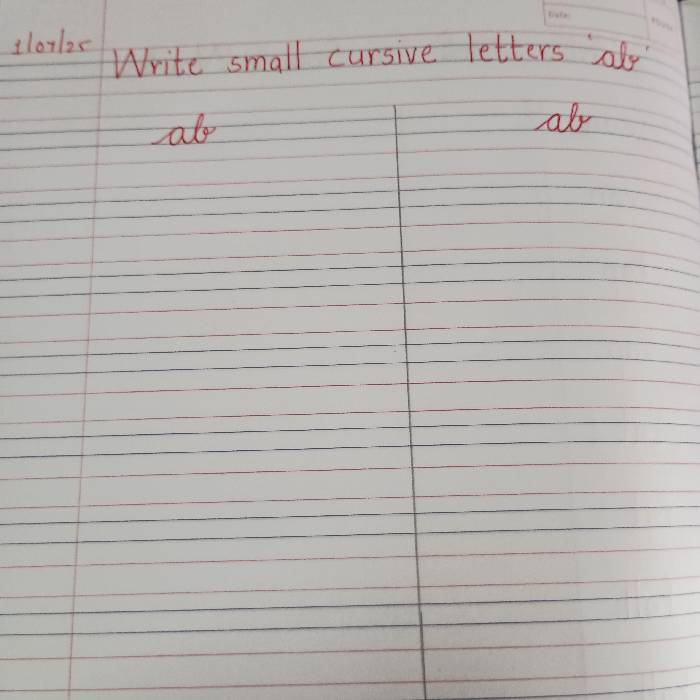 Date:
1/07/25 Write small cursive letters 'ab'
ab ab